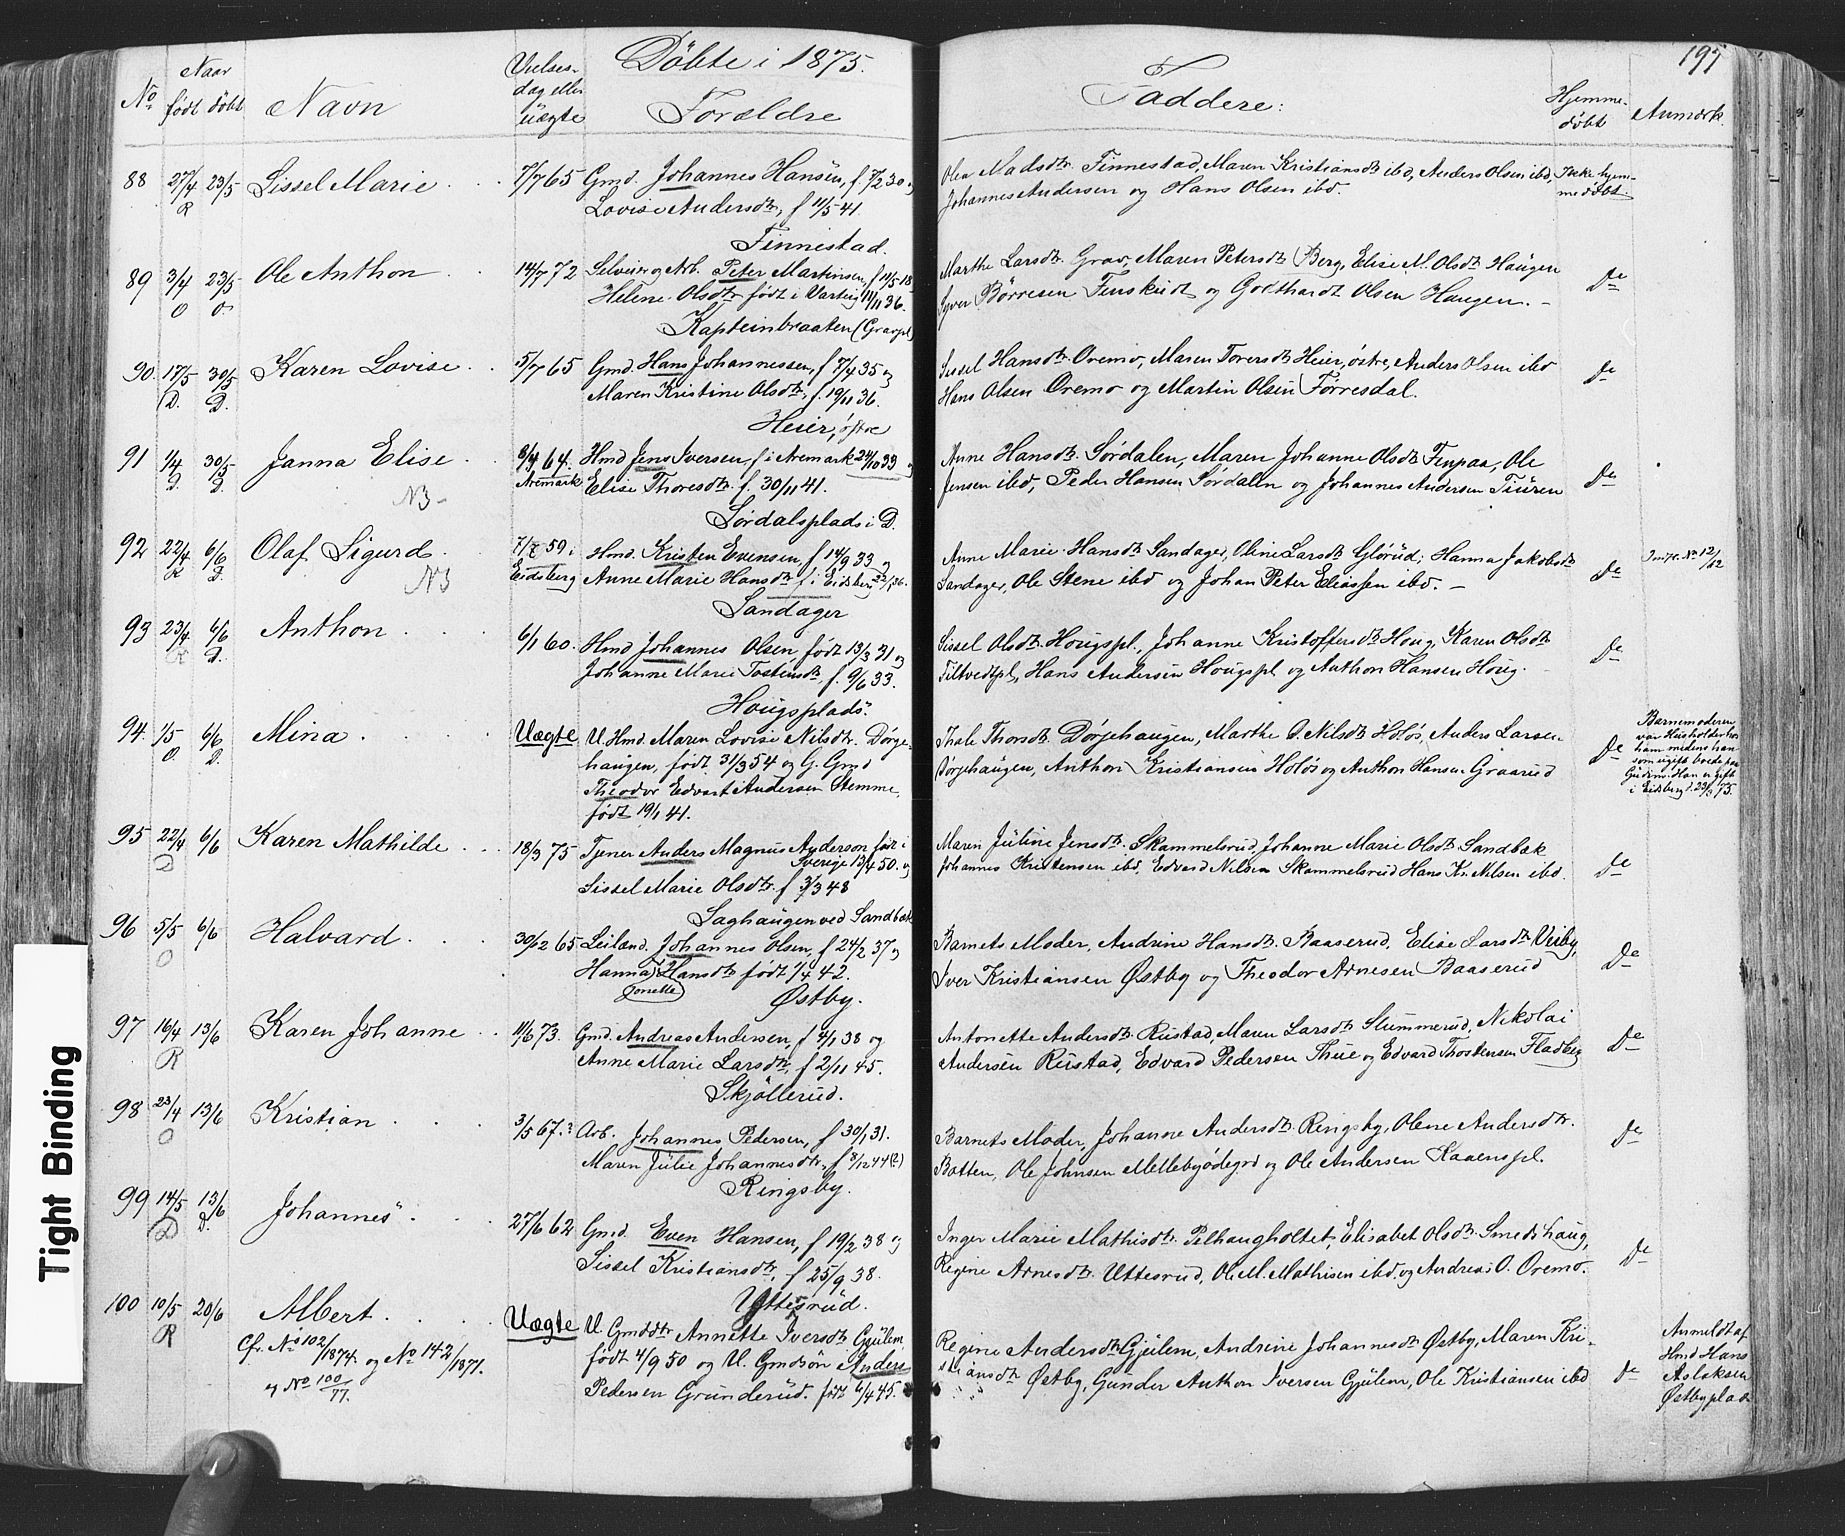 Döbte i 1875.
No
Naar
födt döbt
Navn
Vielses-
dag eller
uægte
Forældre
88 27/4 23/5 Sissel Marie 7/7 65 Gmd. Johannes Hansen, f. 7/2 30 og
R Lovise Andersdtr, f 11/5 41.
Finnestad.
89 3/4 23/5 Ole Anthon 14/7 72 Selveier og Arb. Peter Martinsen, f 11/5 18
O O Helene Olsdtr födt i Varteig 14/11 36.
Kapteinbraaten (Gravpl)
90. 17/5 30/5 Karen Lovise 5/7 65 Gmd. Hans Johannessen, f 7/4 35 og
D. D. Maren Kristine Olsdtr, f. 19/11 36.
Heier, östre
91 1/4 30/5 Janna Elise 64. Hmd Jens Iversen, f i Aremark 24/10 33 og
D. D. Aremark Elise Thoresdtr. f. 30/11 41.
NB- Sørdalsplads i D.
92 22/4 6/6 Olaf Sigurd 59 i Hmd. Kristen Evensen, f 14/9 33 og
R D. NB Eidsberg Anne Marie Hansdtr f. i Eidsberg
Sandager
93 23/4 6/6 Anthon 6/1 60. Hmd Johannes Olsen födt 13/3 31 og
R D. Johanne Marie Tostensdtr, f. 9/6 33.
Hougsplads.
94. 1/5 6/6 Mina Uægte U. Hmd. Maren Lovise Nilsdtr. Dørje-
O. D. haugen, födt 31/3 54 og G. Gmd
Theodor Edvart Andersen Stemme,
födt 19/1 41.
95 22/4 6/6 Karen Mathilde 18/3 75 Tjener Anders Magnus Anderson föd i
D Sverige 13/4 50. og
Sissel Marie Olsdtr. f 3/3 48
Saghaugen ved Sandbæk
96 5/5 6/6 Halvard 30/12 65 Leilænd. Johannes Olsen, f 24/2 37 og
O Hanna Hansdtr födt 1/4 42.
Jonette
Østby.
97 16/4 13/6 Karen Johanne 11/6 73. Gmd. Andreas Andersen, f 4/1 38 og
R Anne Marie Larsdtr, f 2/11 45.
Skjöllerud.
98 23/4 13/6 Kristian 3/5 67.? Arb. Johannes Pedersen, f 30/1 31.
O Maren Julie Johannesdtr, f 8/12 44 (?)
Ringsby.
99 14/5 13/6 Johannes 27/6 62 Gmd. Even Hansen, f 19/2 38 og
D D. Sissel Kristiansdtr, f 25/9 38.
Yttesrud.
100 10/5 20/6 Albert. Uægte U. Gmddtr Annette Iversdtr Gjülem,
R Cfr. No 102/1874. og No 142/1871. födt 4/9 50 og U. Gmdsön Anders
og No 100/77. Pedersen Grunderud. födt 6/4 45.
Faddere:
Hjemme-
döbt
Anmærk.
197
Olea Madsdtr. Finnestad, Maren Kristiansdtr ibd, Anders Olsen ibd, Ikke hjem-
Johannes Andersen og Hans Olsen ibd. medöbt.
Marthe Larsdtr. Grav, Maren Petersdtr Berg, Elise M. Olsdtr Haugen
Iver Børresen Finskudt og Gotthardt Olsen Haugen. - Do
Sissel Hansdtr. Oremo, Maren Torersdtr Heier, østre, Anders Olsen ibd
Hans Olsen Oremo og Martin Olsen Førresdal. Do
Anne Hansdtr. Sørdalen, Maren Johanne Olsdtr Finpaa, Ole
Jensen ibd, Peder Hansen Sørdalen og Johannes Andersen Tiüren Do
Anne Marie Hansdtr Sandager, Oline Larsdtr Glørüd, Hanna Jakobsdtr
Sandager, Ole Stene ibd og Johan Peter Eliassen ibd. - Do
No 12/62
Sissel Olsdtr. Hougspl., Johanne Kristoffersdtr Houg, Karen Olsdtr
Tiltvedtpl, Hans Andersen Hougspl og Anthon Hansen Houg. Do
Thale Thorsdtr Dørjehaugen, Marthe O. Nilsdtr Holøs, Anders Larsen
Dørjehaugen, Anthon Kristiansen Holøs og Anthon Hansen Graarud Do
Barnemoderen
var Husholderhos
ham medens han
som ugift boede paa
Gudim. Han er gift
i Eidsberg d. 75.
Maren Juline Jensdtr. Skammelsrud, Johanne Marie Olsdtr Sandbæk
Johannes Kristensen ibd, Edvard Nilsen Skammelsrud Hans Kr. Nilsen ibd. Do
Barnets Moder, Andrine Hansdtr. Baaserud, Elise Larsdtr Visby,
Iver Kristiansen Østby og Theodor Arnesen Baaserud Do
Antonette Andersdtr Rustad, Maren Larsdtr Slummerud, Nikolai
Andersen Rustad, Edvard Pedersen Thue og Edvard Thostensen Fladberg Do
Barnets Moder, Johanne Andersdtr. Ringsby, Olene Andersdtr.
Botten, Ole Johnsen Mellebyødegrd og Ole Andersen Kaaenspl. Do
Inger Marie Mathisdtr. Pelhaugholtet, Elisabet Olsdtr. Smedshaug,
Regine Arnesdtr. Uttesrud, Ole M. Mathisen ibd. og Andreas O. Oremo. Do
Regine Andersdtr Gjülem, Andrine Johannesdtr Østby, Maren Kri-
stiansdtr Østby, Gunder Anthon Iversen Gjülem, Ole Kristiansen ibd Do
Anmeldt af
Hmd Hans
Aslaksen
Østbyplads
Tight Binding